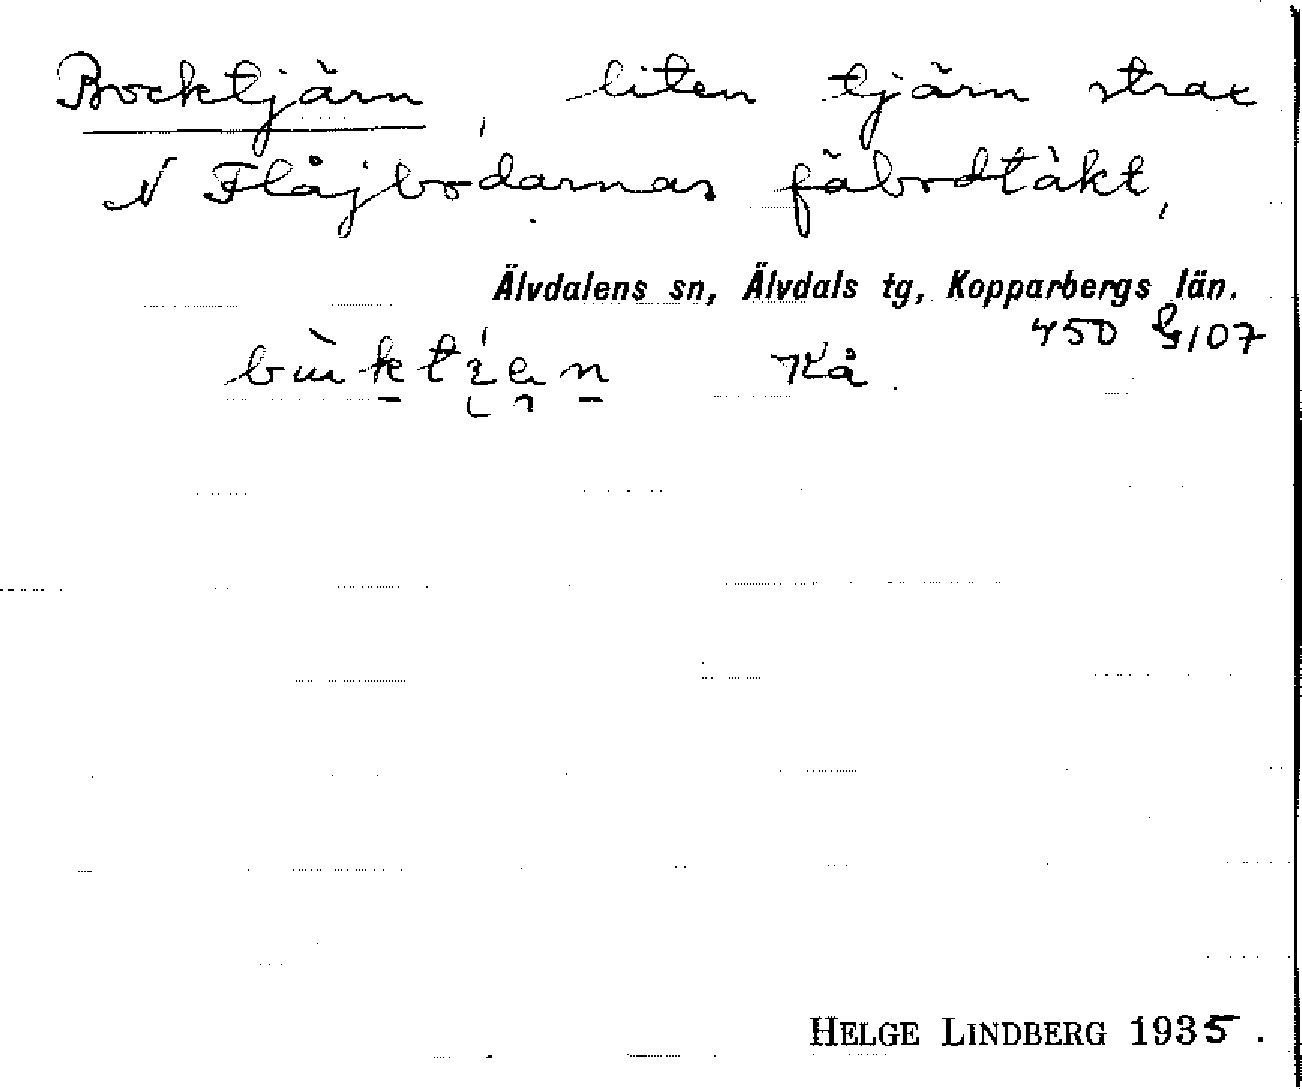 Bocktjärn, liten tjärn strax
N Flåjbodarnas fäbodtäkt,
Älvdalens sn, Älvdals tg, Kopparbergs län.
450 G/07
Kå.
HELGE LINDBERG 1935.